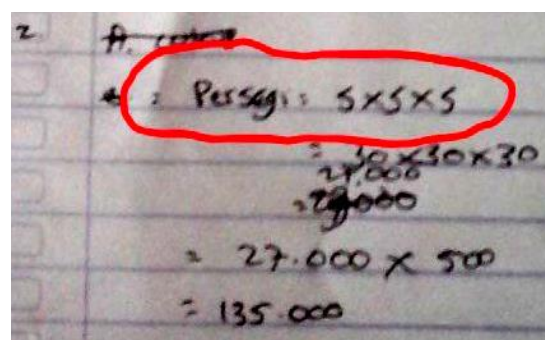 2
Persegi : S×S×S
= 30×30×30
27.000
=
= 27.000 × 500
= 135.000